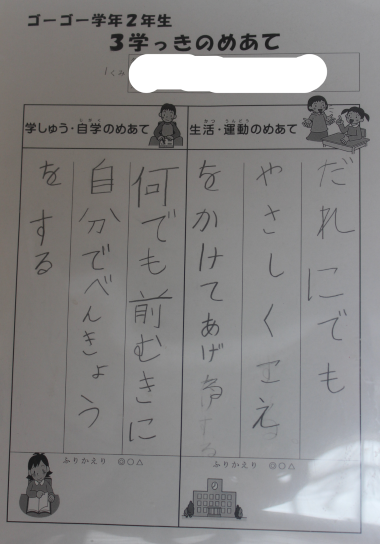 ゴーゴー学年2年生
3学っきのめあて
1くみ
生活・運動のめあて
かつ うんどう
だれにでも
やさしくこえ
をかけてあげ
ふりかえり ◎○△
学しゅう・自学のめあて
じがく
何でも前むきに
自分でべんきょう
をする
ふりかえり ◎○△